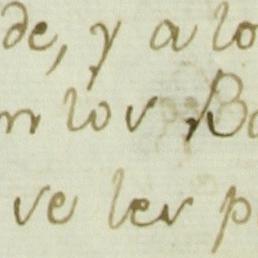 de, y a lo
n los Ba
se les p